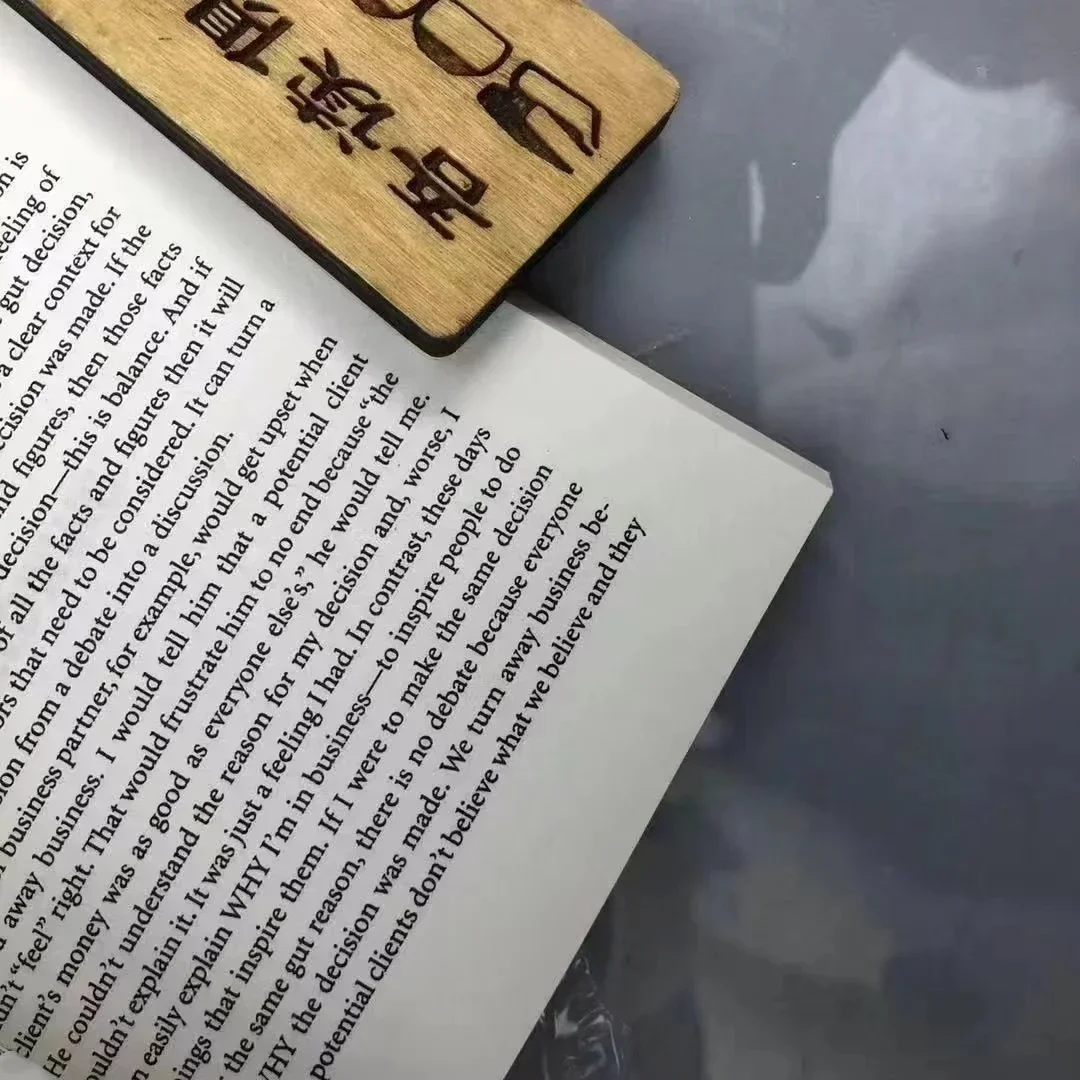 吾读
on is
eeling of
gut decision,
a clear context for
cision was made. If the
nd figures, then those facts
decision—this is balance. And if
of all the facts and figures then it will
ors that need to be considered. It can turn a
sion from a debate into a discussion.
business partner, for example, would get upset when
away business. I would tell him that a potential client
dn't “feel” right. That would frustrate him to no end because “the
client's money was as good as everyone else's,” he would tell me.
He couldn't understand the reason for my decision and, worse, I
ouldn't explain it. It was just a feeling I had. In contrast, these days
n easily explain WHY I'm in business—to inspire people to do
ings that inspire them. If I were to make the same decision
the same gut reason, there is no debate because everyone
WHY the decision was made. We turn away business be-
potential clients don't believe what we believe and they